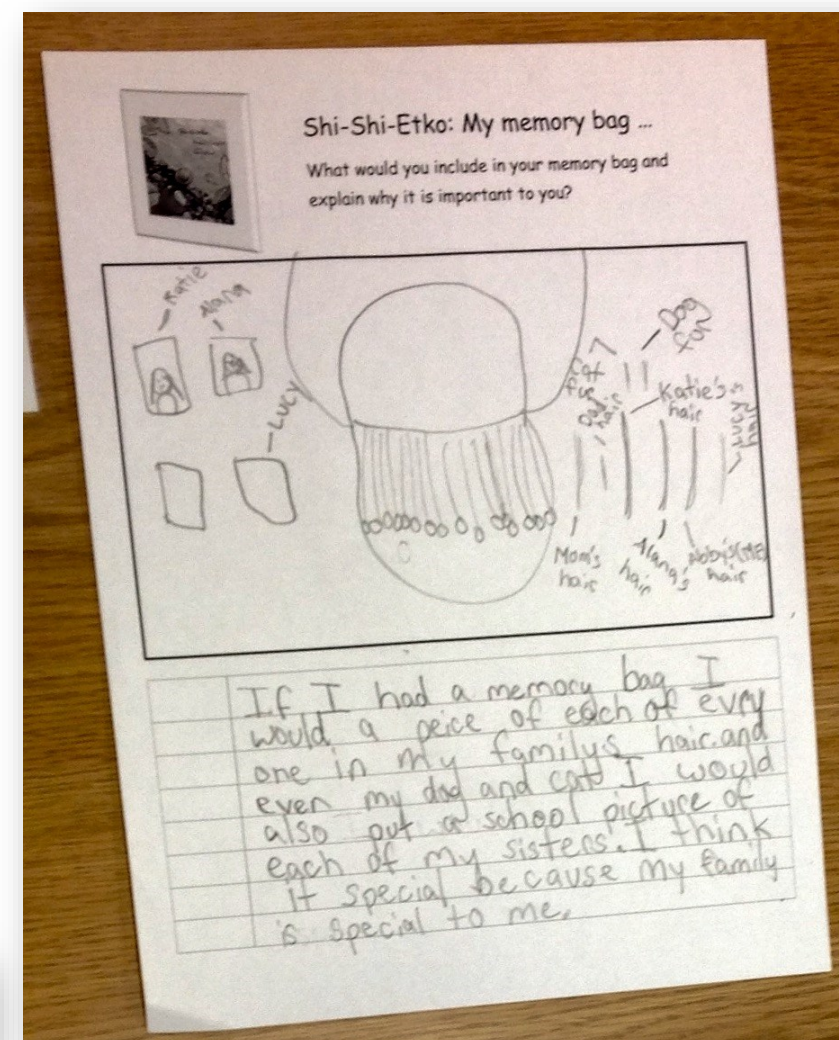 Shi-Shi-Etko: My memory bag ...
What would you include in your memory bag and
explain why it is important to you?
Katie
Alana
LUCY
Dog
fur
Dad
hair
Katie's
hair
Mom's
hair
Alana's
hair
Abby's(ME)
hair
If I had a memory bag I
would a peice of each of evry
one in my familys hair.and
even my dog and cat I would
also put a school picture of
each of my sisters. I think
it special because my family
is special to me.